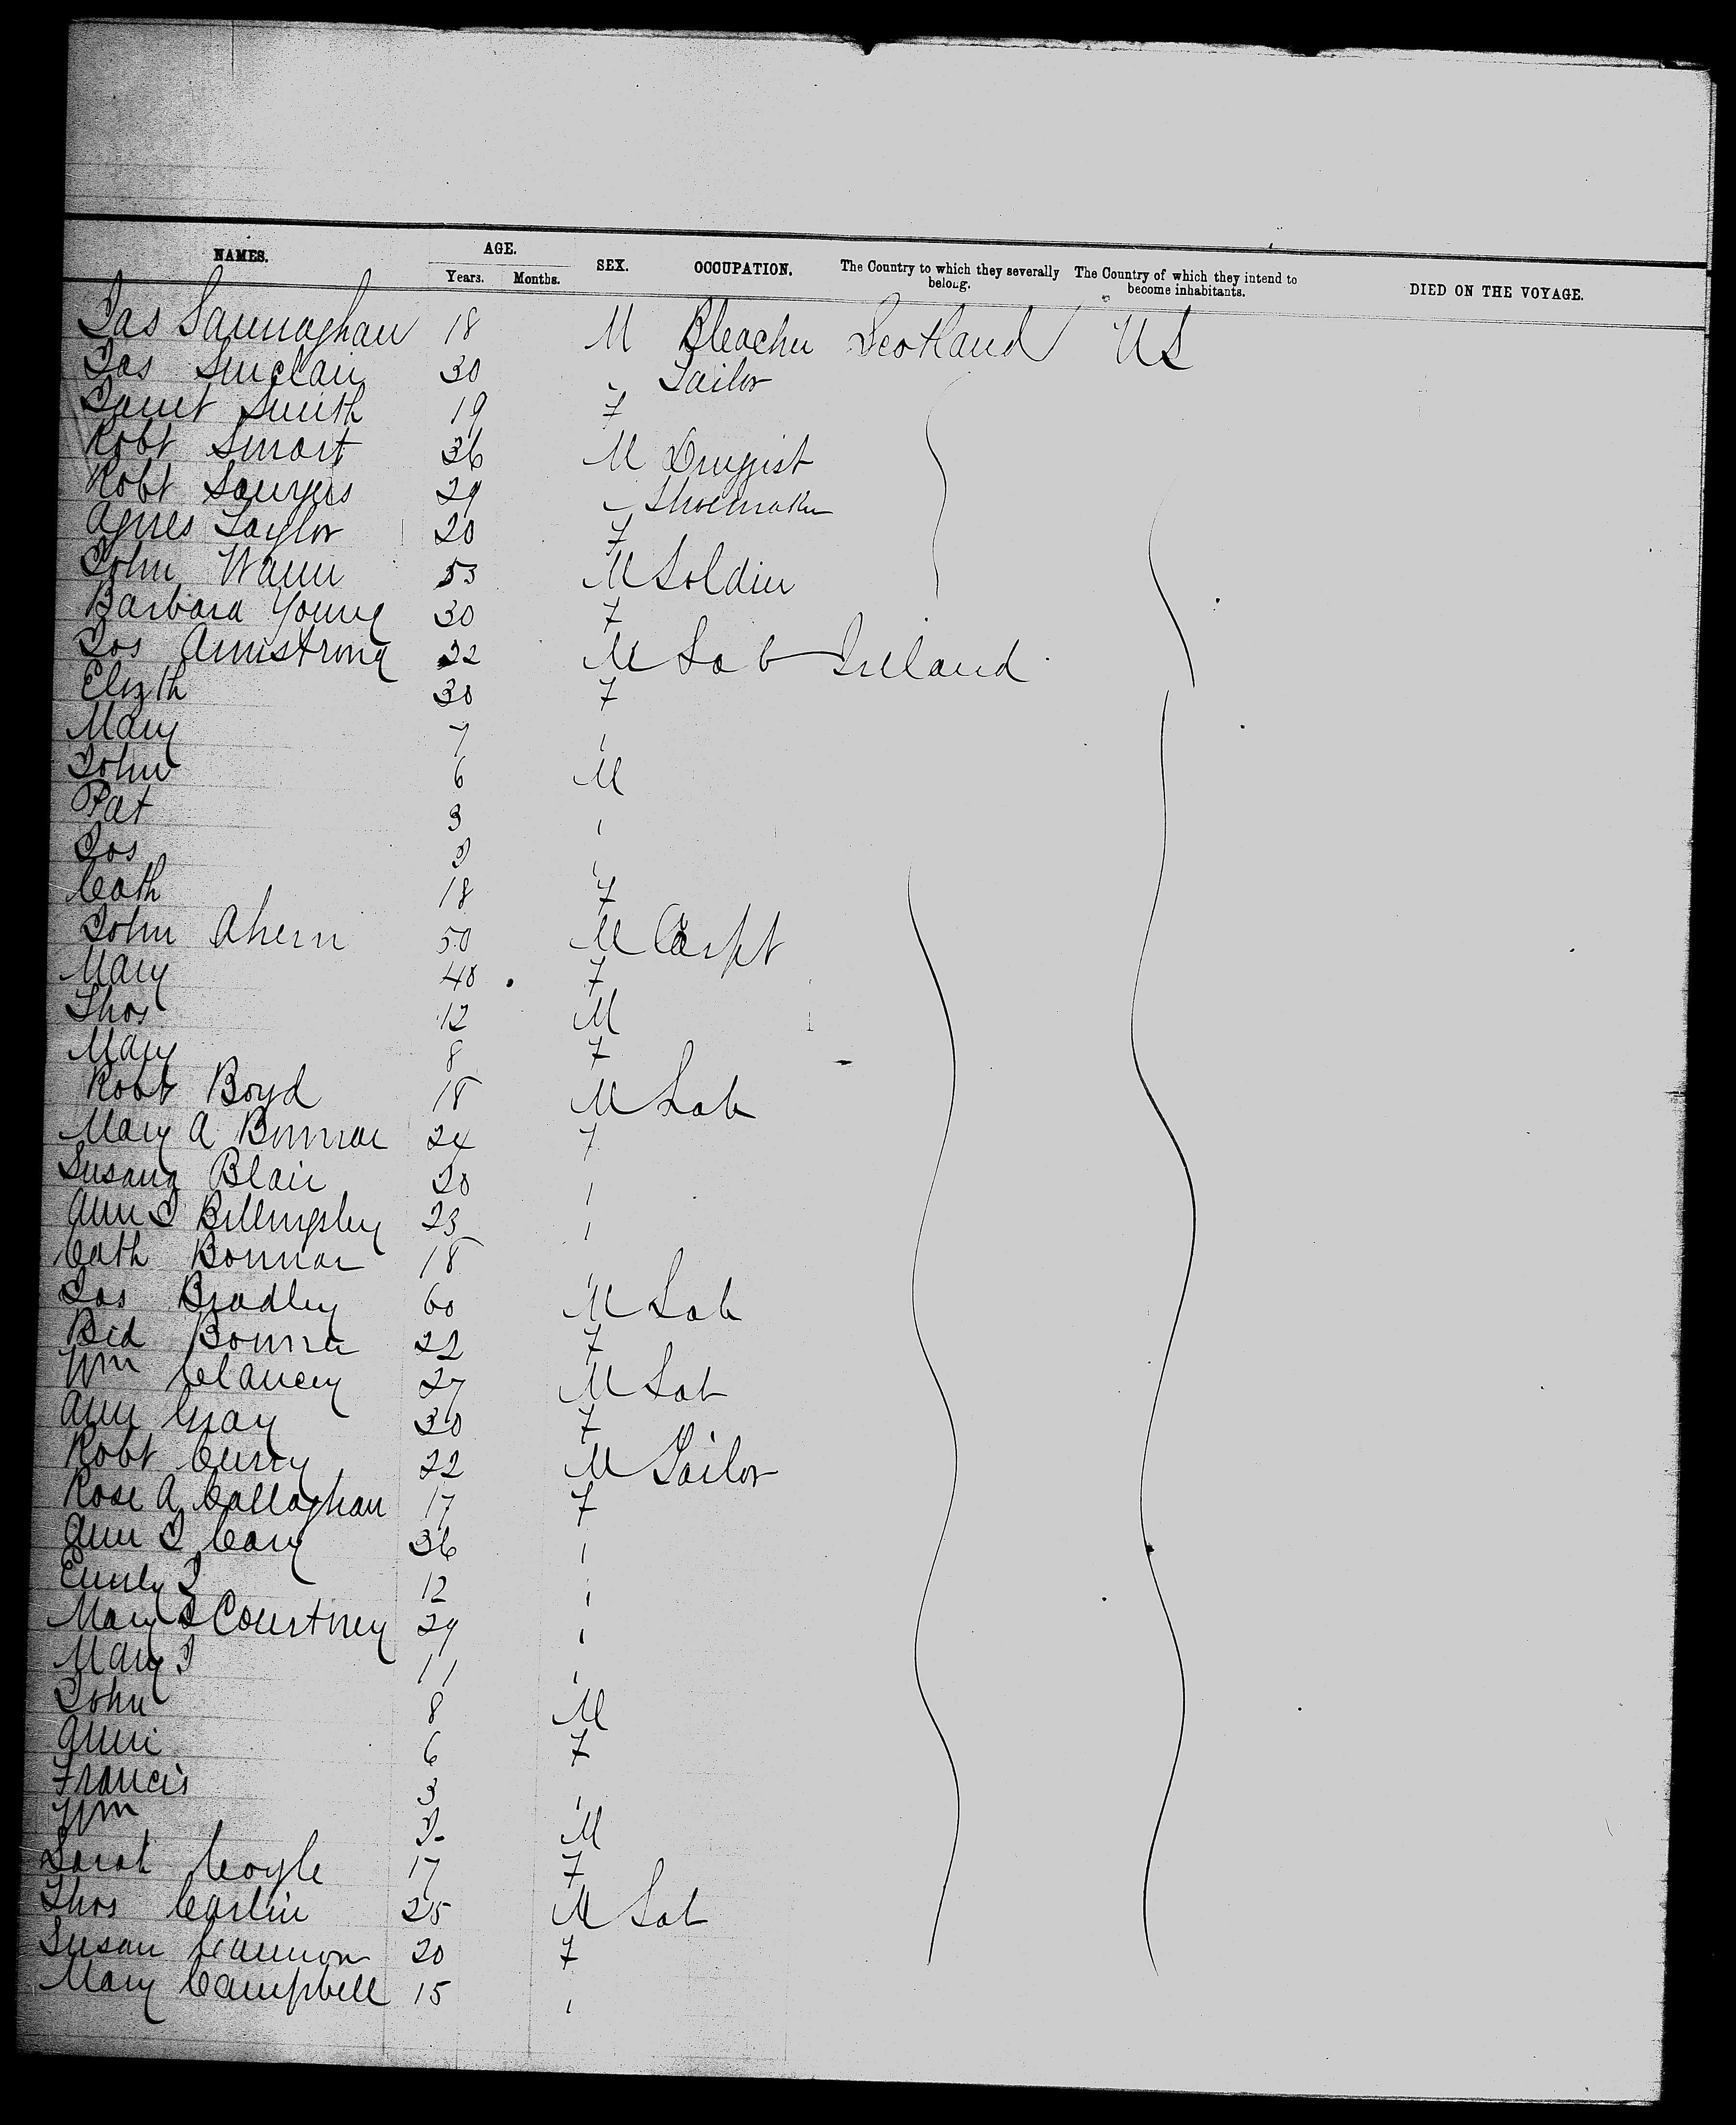 NAMES. AGE. SEX. OCCUPATION. The Country to which they severally belong. The Country of which they intend to become inhabitants. DIED ON THE VOYAGE.
Years. Months.
Jas 18 M Bleacher Scotland US
Jas Sinclair 30 " Tailor
Janet Smith 19 F
Robt Smart 36 M Drugist
Robt 29 " Shoemaker
Agnes Taylor 20 F
John Wann 53 M Soldier
Barbara Young 30 F
Jos Armstrong 32 M Lab Ireland
Elizth 30 F
Mary 7 "
John 6 M
Pat 3 "
Jos "
Cath 18 F
John Ahern 50 M Carpt
Mary 40 F
Thos 12 M
Mary 8 F
Robt Boyd 18 M Lab
Mary A Bonnar 24 F
Susana Blair 20 "
Ann J Billingsley 23 "
Cath Bonnar 18 "
Jas Bradley 60 M Lab
Bid Bonnar 22 F
Wm Clancey 27 M Lab
Ann 30 F
Robt Curry 22 M Tailor
Rose A Callaghan 17 F
Ann J Cary 36 "
Emily J 12 "
Mary J Courtney 29 "
Mary J 11 "
John 8 M
Anni 6 F
Francis 3 "
Wm M
Sarah Coyle 17 F
Thos Carlin 25 M Lab
Susan Cannon 20 F
Mary Campbell 15 "